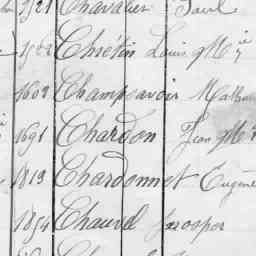 1521 Chavalier Paul
1562 Chrétin Louis Mie
1609 Champavoir Mathur
1691 Chardon Jean M
1819 Chardonnet Eugène
1854 Chauvel Prosper